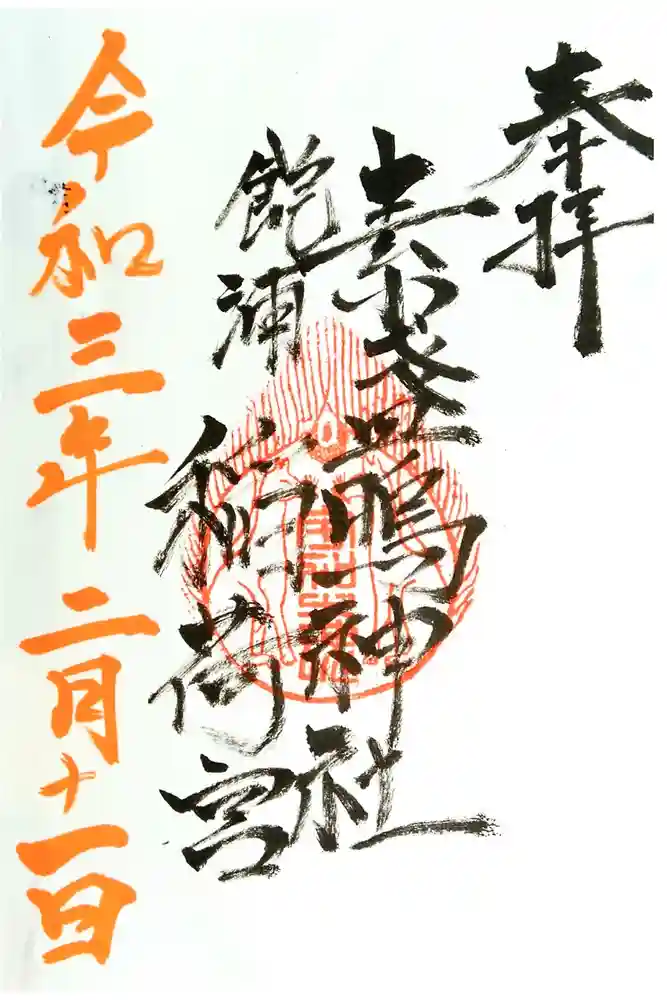 奉拝
素盞鳴神社
飽浦
稲荷宮
令和三年 二月十一日